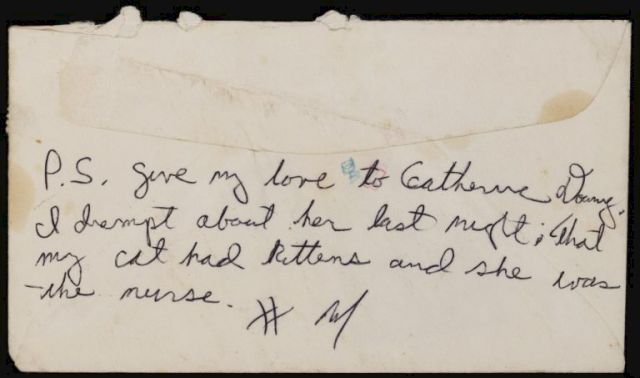 P.S. Give my love to Catherine
I drempt about her last night; that
my cat had kittens and she was
the nurse. # M